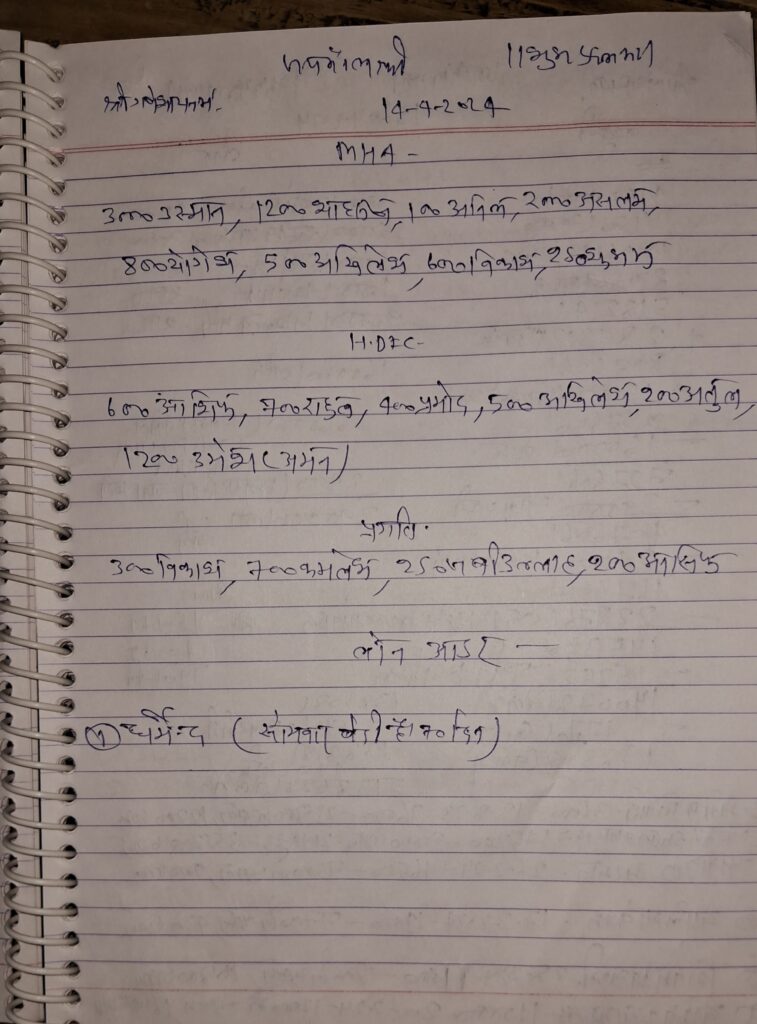 जय माँ लक्ष्मी ॥शुभ
श्री गणेशाय नमः 14-4-2024
MHA -
3000 उस्मान, 1200 शाहरुख, 100 अनिल, 2000 असलम,
800 योगेश, 500 अखिलेश, 600 विकाश, 250 शुभम
H.DFC-
600 आशिफ, 700 राहुल, 400 प्रमोद, 500 अखिलेश, 200 अतुल,
1200 उमेश (अमन)
प्रगति.
300 विकाश, 700 कमलेश, 250 नबीउल्लाह, 200 आसिफ
लोन आडर —
① धर्मेन्द (सोमवार 70 दिन)